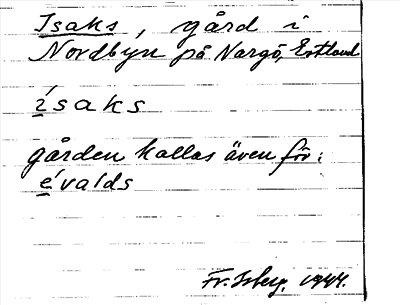 Isaks, gård i
Nordbyn på Nargö, Estland
ísaks
gården kallas även för:
évalds
Fr. Isberg. 1944.